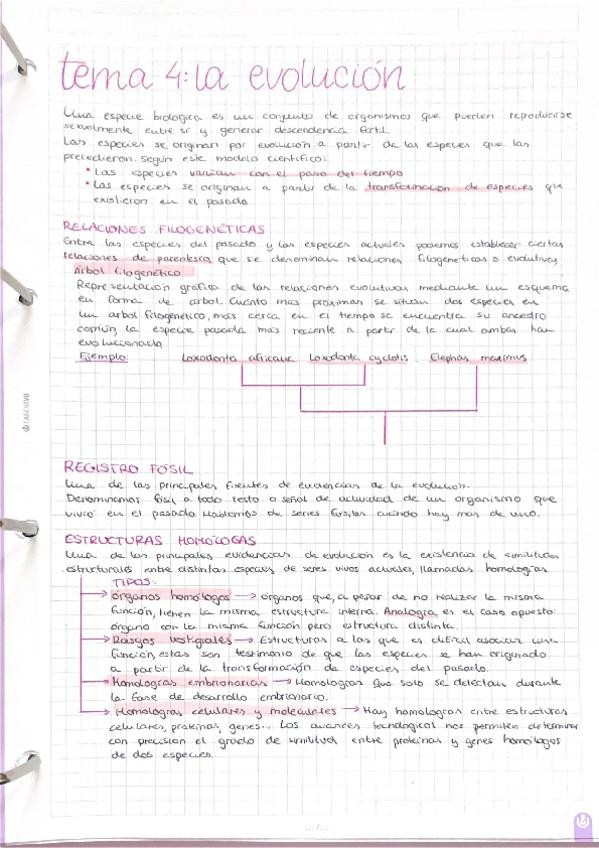 tema 4: la evolución
Una especie biológica es un conjunto de organismos que pueden reproducirse
sexualmente entre sí y generar descendencia fértil.
Las especies se originan por evolución a partir de las especies que las
precedieron. Según este modelo científico:
• Las especies varían con el paso del tiempo
• Las especies se originan a partir de la transformación de especies que
existieron en el pasado
RELACIONES FILOGENÉTICAS
Entre las especies del pasado y las especies actuales podemos establecer ciertas
relaciones de parentesco, que se denominan relaciones filogenéticas o evolutivas.
Árbol filogenético
Representación gráfica de las relaciones evolutivas mediante un esquema
en forma de árbol. Cuanto más próximas se sitúan dos especies en
un árbol filogenético, más cerca en el tiempo se encuentra su ancestro
común, la especie pasada más reciente a partir de la cual ambas han
evolucionado
Ejemplo: Loxodonta africana Loxodonta cyclotis Elephas maximus
REGISTRO FÓSIL
Una de las principales fuentes de evidencias de la evolución.
Denominamos fósil a todo resto o señal de actividad de un organismo que
vivió en el pasado. Hablamos de series fósiles cuando hay más de uno.
ESTRUCTURAS HOMÓLOGAS
Una de las principales evidencias de evolución es la existencia de similitudes
estructurales entre distintas especies de seres vivos actuales, llamadas homologías
TIPOS:
Órganos homólogos → Órganos que, a pesar de no realizar la misma
función, tienen la misma estructura interna. Analogía es el caso opuesto:
órgano con la misma función pero estructura distinta.
Rasgos vestigiales → Estructuras a las que es difícil asociar una
función, estas son testimonio de que las especies se han originado
a partir de la transformación de especies del pasado.
Homologías embrionarias → Homologías que solo se detectan durante
la fase de desarrollo embrionario.
Homologías celulares y moleculares → Hay homologías entre estructuras
celulares, proteínas, genes... Los avances tecnológicos nos permiten determinar
con precisión el grado de similitud entre proteínas y genes homólogos
de dos especies.